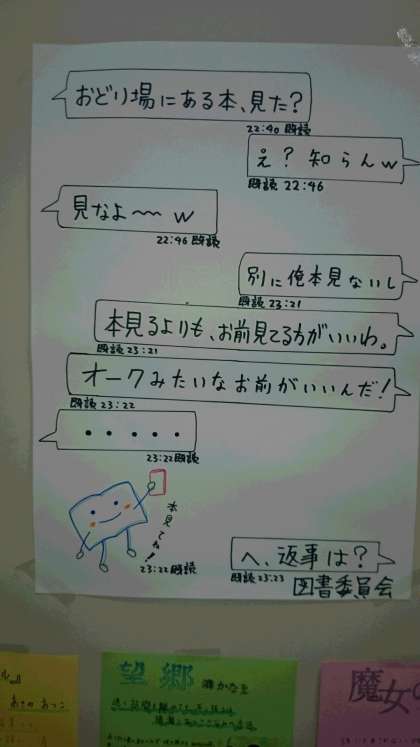 おどり場にある本、見た?
22:40 既読
え? 知らんw
既読 22:46
見なよ〜〜 w
22:46 既読
別に俺本見ないし
既読 23:21
本見るよりも、お前見てる方がいいわ。
既読 23:21
オークみたいなお前がいいんだ!
既読 23:22
・・・・・
23:22 既読
本見てね!
23:22 既読
へ、返事は?
既読 23:23
図書委員会
あさの あつこ
望郷
湊かなえ
魔女の